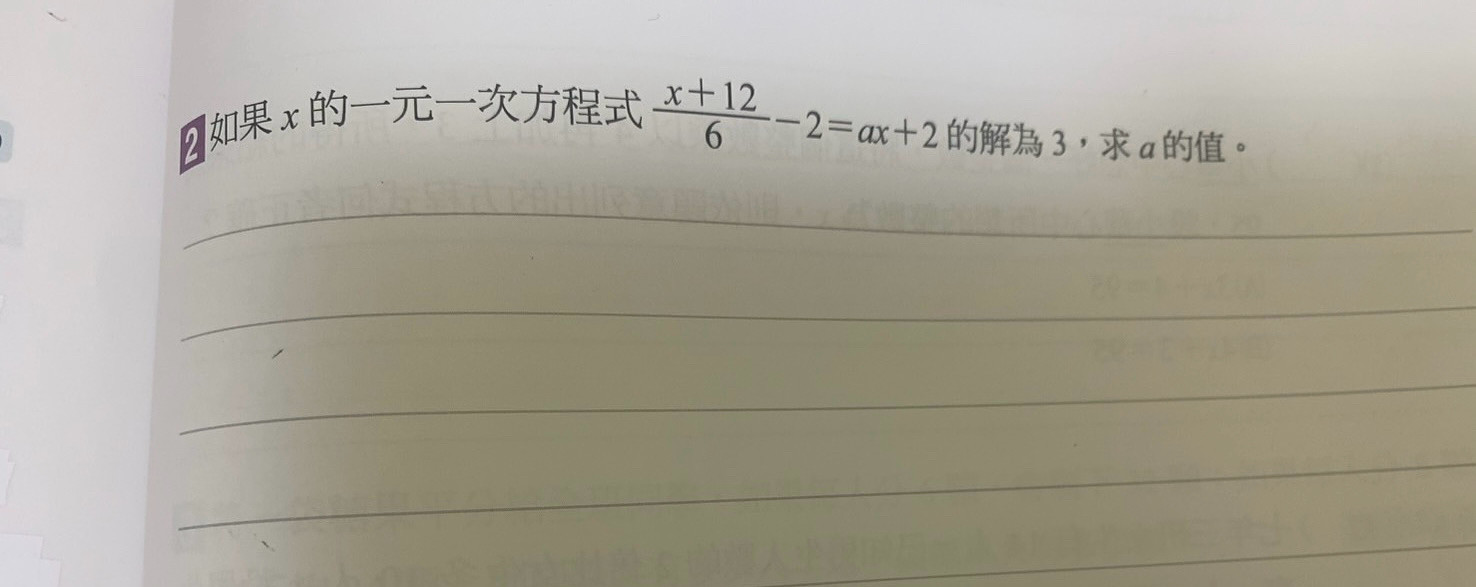 2 如果 x 的一元一次方程式 \frac{x+12}{6}-2=ax+2 的解為 3,求 a 的值。